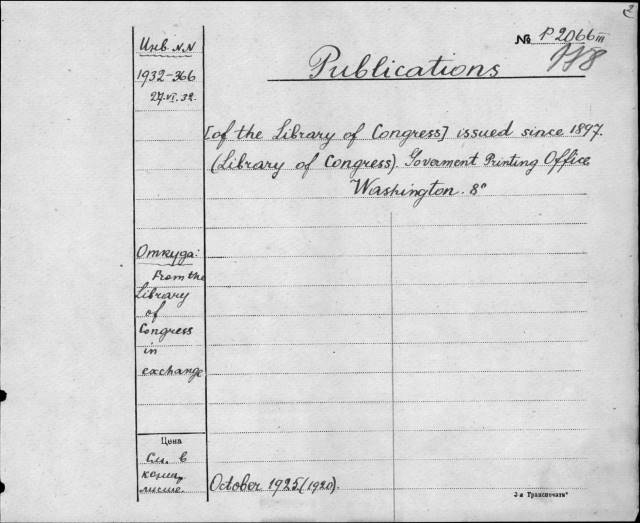 2
Инв. NN
№ P 2066 III
118
1932-366
27.VI.32.
Publications
[of the Library of Congress] issued since 1897.
(Library of Congress). Goverment Printing Office
Washington. 8°
Откуда:
From the
Library
of
Congress
in
exchange
Цена
См. в
October 1925 (1920).
3-я Транспечать"